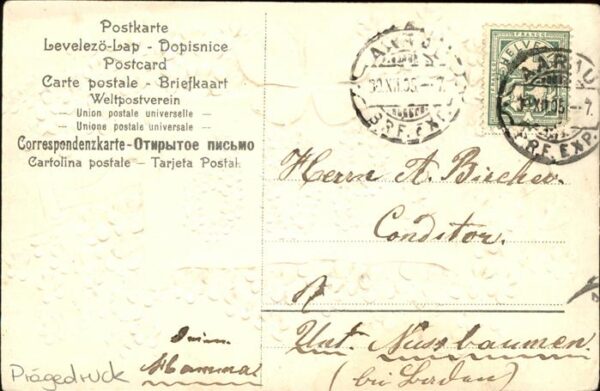 Postkarte
Levelező-Lap - Dopisnice
Postcard
Carte postale - Briefkaart
Weltpostverein
— Union postale universelle —
— Unione postale universale —
Correspondenzkarte - Открытое письмо
Cartolina postale - Tarjeta Postal
AARAU
30.XII.05.-7.
BRF. EXP.
HELVETIA
AARAU
XII.05.-7.
BRF. EXP.
Herrn A. Bircher.
Conditor.
Unt. Nussbaumen
(bei Baden)
Prägedruck